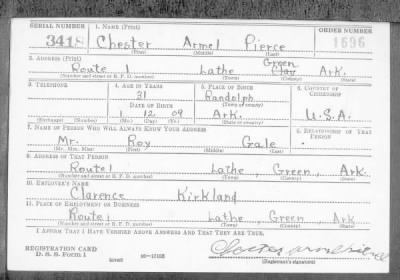 SERIAL NUMBER 1. NAME (Print) ORDER NUMBER
3418 Chester Armel Pierce 1696
(First) (Middle) (Last)
2. ADDRESS (Print)
Green
Route 1 Lathe Clay Ark.
(Number and street or R. F. D. number) (Town) (County) (State)
3. TELEPHONE 4. AGE IN YEARS 5. PLACE OF BIRTH 6. COUNTRY OF CITIZENSHIP
31 Randolph
DATE OF BIRTH (Town or county)
1 12 09 Ark. U.S.A.
(Exchange) (Number) (Mo.) (Day) (Yr.) (State or country)
7. NAME OF PERSON WHO WILL ALWAYS KNOW YOUR ADDRESS 8. RELATIONSHIP OF THAT PERSON
Mr. Roy Gale .
(Mr., Mrs., Miss) (First) (Middle) (Last)
9. ADDRESS OF THAT PERSON
Route 1 Lathe, Green, Ark.
(Number and street or R. F. D. number) (Town) (County) (State)
10. EMPLOYER'S NAME
Clarence Kirkland
11. PLACE OF EMPLOYMENT OR BUSINESS
Route 1 Lathe, Green, Ark
(Number and street or R. F. D. number) (Town) (County) (State)
I AFFIRM THAT I HAVE VERIFIED ABOVE ANSWERS AND THAT THEY ARE TRUE.
REGISTRATION CARD
D. S. S. Form 1 (over) (Registrant's signature)